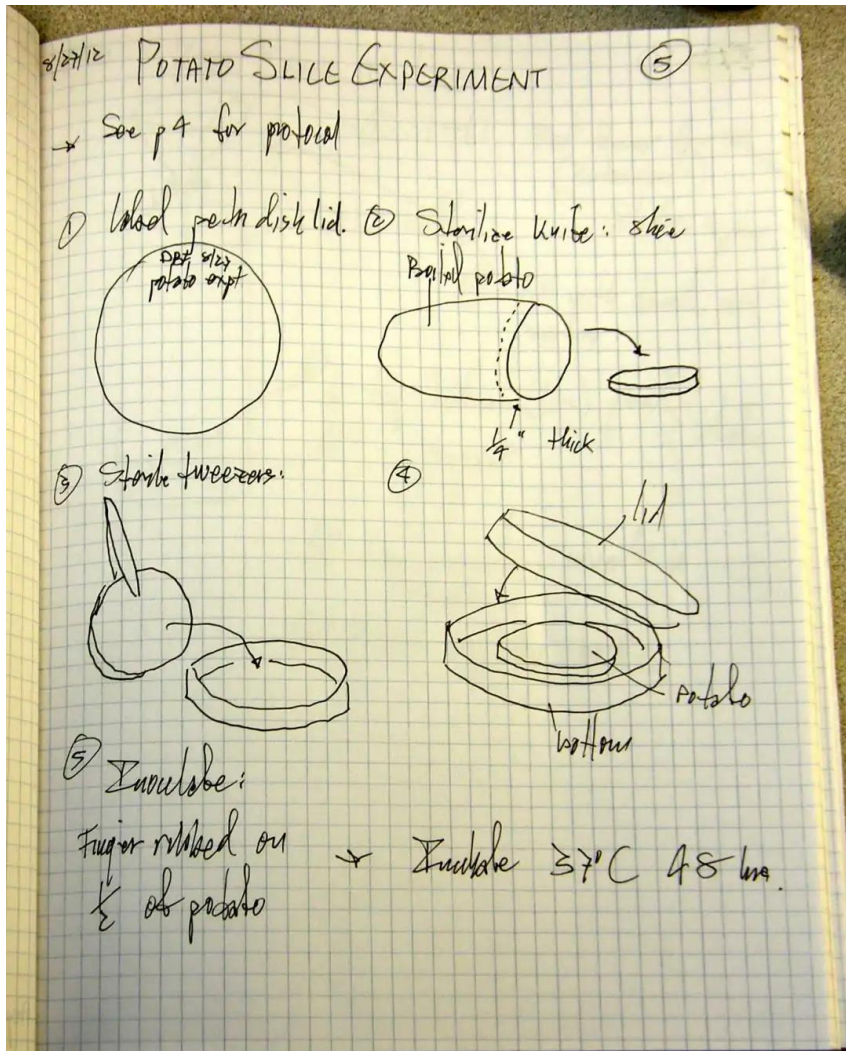 8/27/12 POTATO SLICE EXPERIMENT 5
→ See p 4 for protocol
① Label petri dish lid.
DBF 8/27
potato expt
② Sterilize knife: slice
Boiled potato
1/4" thick
③ Sterile tweezers:
④
lid
potato
bottom
⑤
Inoculate:
Finger rubbed on
1/2 of potato
→ Incubate 37°C 48 hrs.